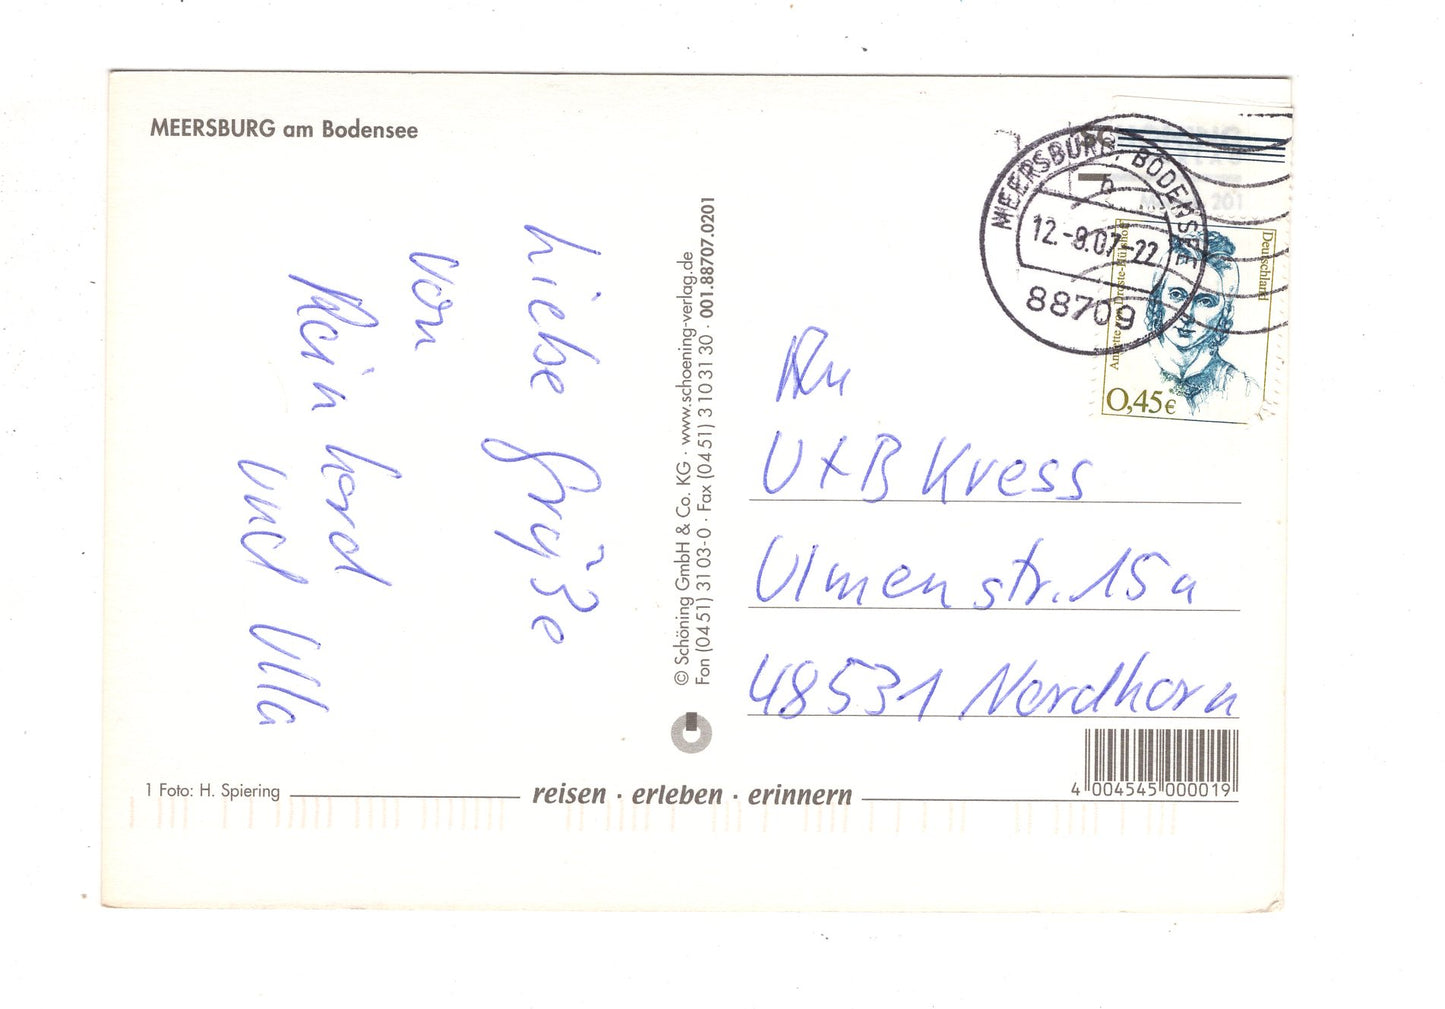 MEERSBURG am Bodensee
Liebe Grüße
von
Reinhard
und Ulla
© Schöning GmbH & Co. KG · www.schoening-verlag.de
Fon (04 51) 31 03-0 · Fax (04 51) 3 10 31 30 · 001.88707.0201
MEERSBURG, BODENSEE
b
12.-9.07-22
88709
Deutschland
Annette von Droste-Hülshoff
0,45€
An
U+B Kress
Ulmenstr. 15a
48531 Nordhorn
4 004545 000019
1 Foto: H. Spiering
reisen · erleben · erinnern